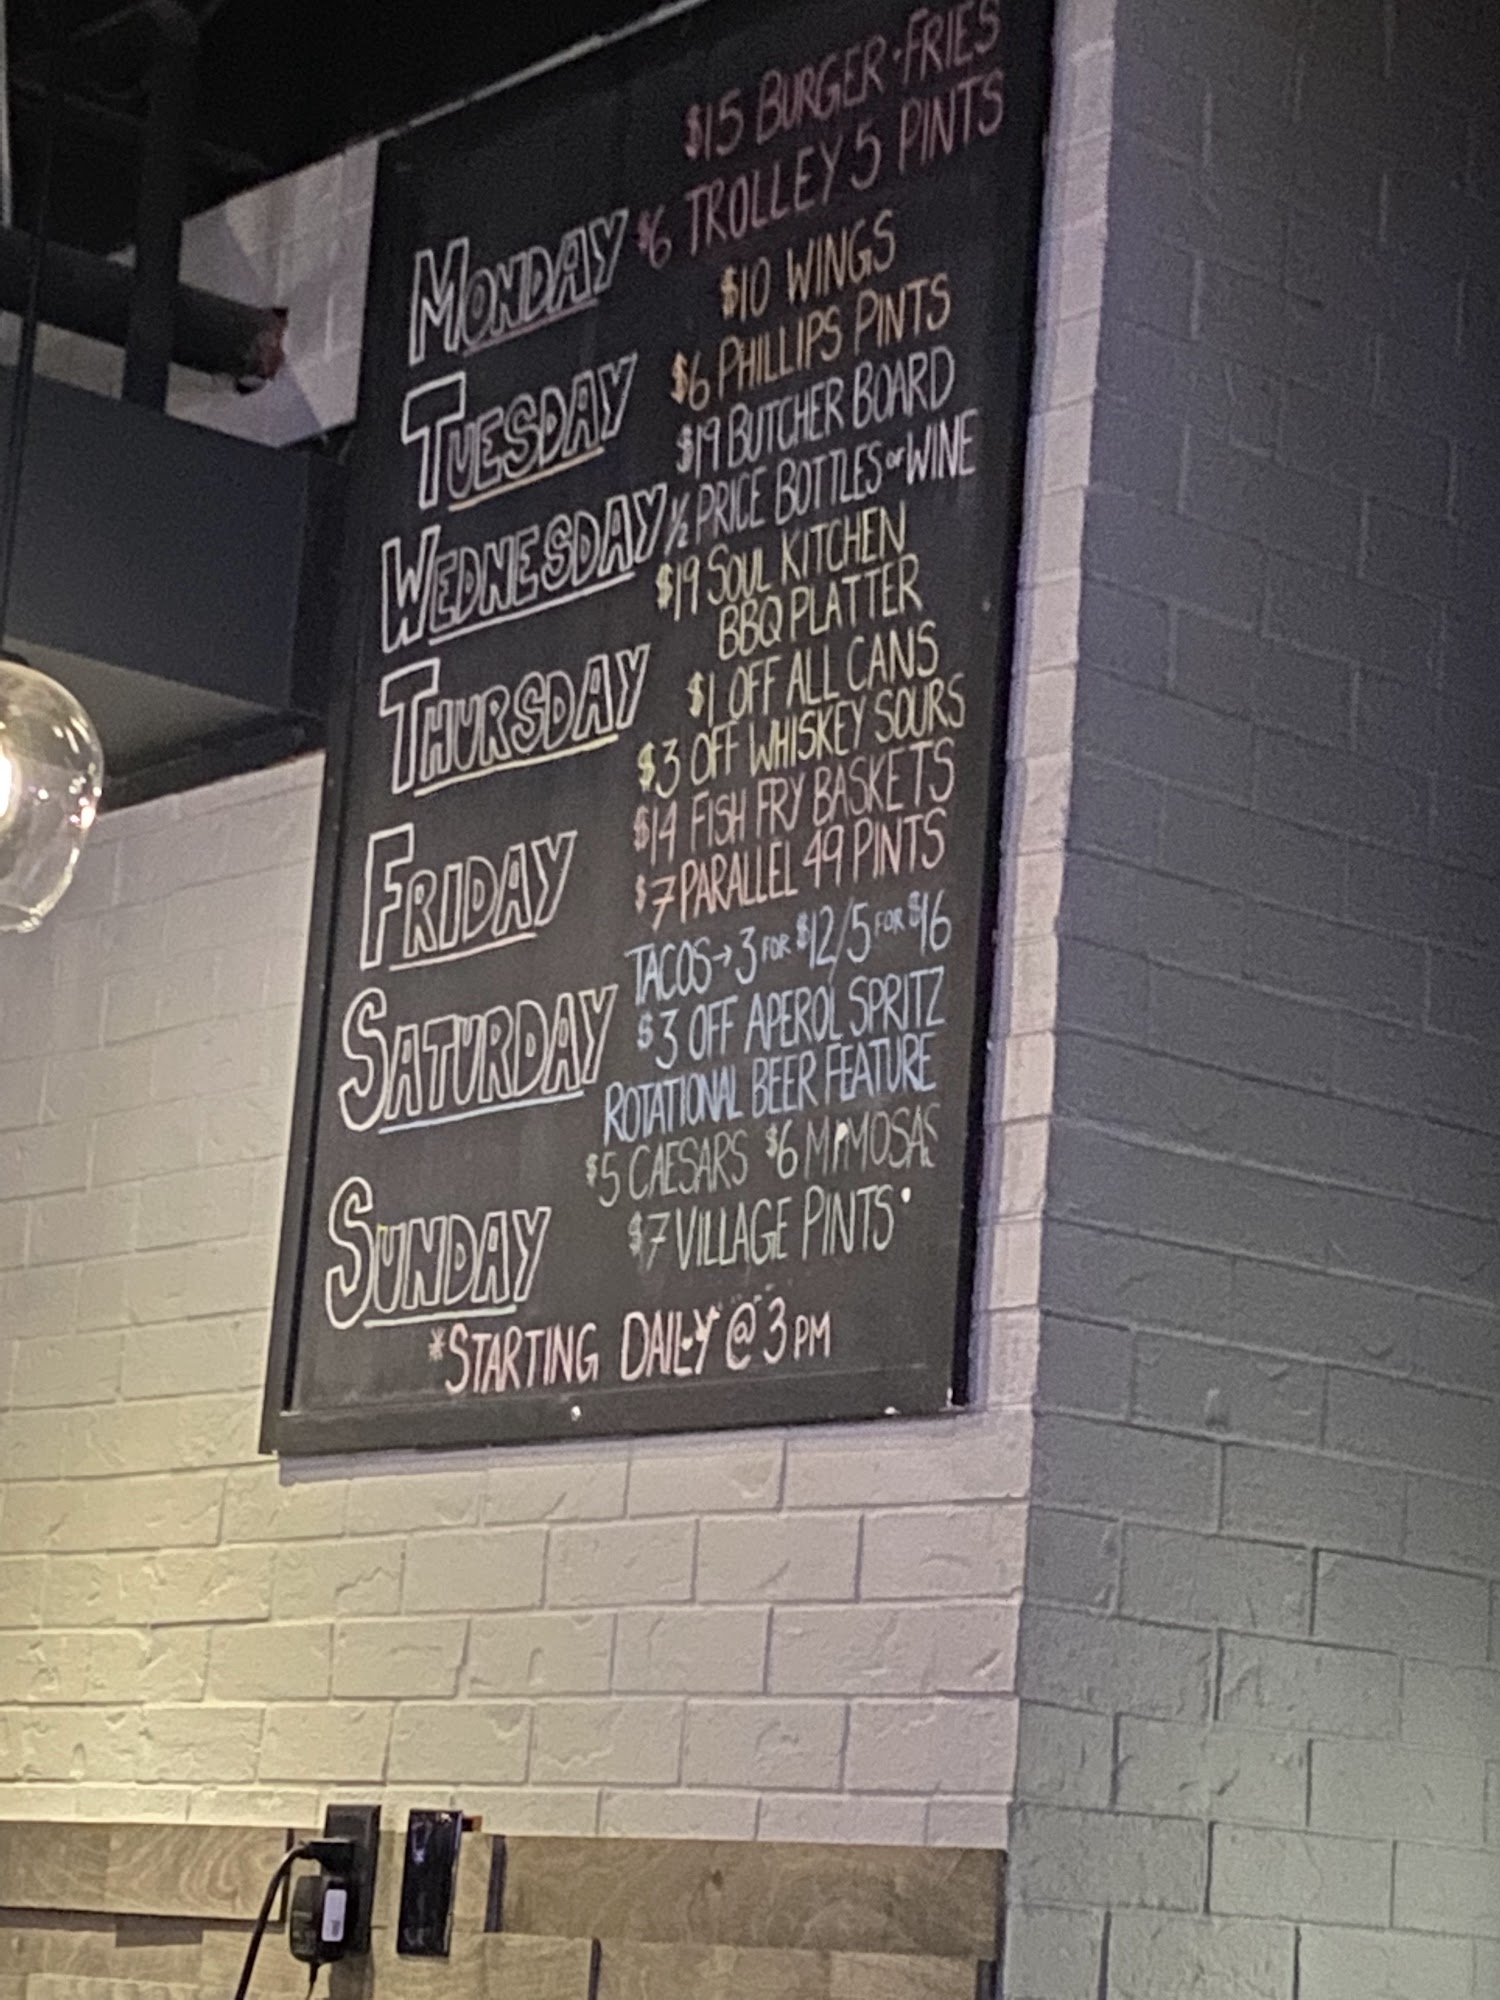 $15 BURGER • FRIES
MONDAY $6 TROLLEY 5 PINTS
$10 WINGS
TUESDAY $6 PHILLIPS PINTS
$19 BUTCHER BOARD
WEDNESDAY ½ PRICE BOTTLES OF WINE
$19 SOUL KITCHEN
BBQ PLATTER
THURSDAY $1 OFF ALL CANS
$3 OFF WHISKEY SOURS
$14 FISH FRY BASKETS
FRIDAY $7 PARALLEL 49 PINTS
TACOS → 3 FOR $12/5 FOR $16
SATURDAY $3 OFF APEROL SPRITZ
ROTATIONAL BEER FEATURE
$5 CAESARS $6 MIMOSAS
SUNDAY $7 VILLAGE PINTS
*STARTING DAILY @ 3PM